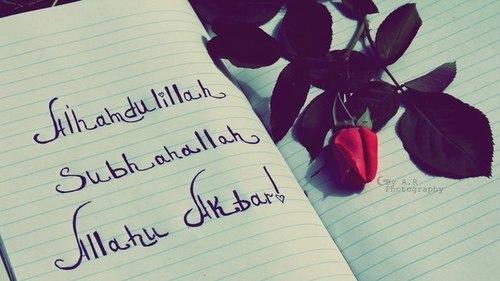 Alhamdulillah
Subhanallah
Allahu Akbar!
©By A.R
Photography